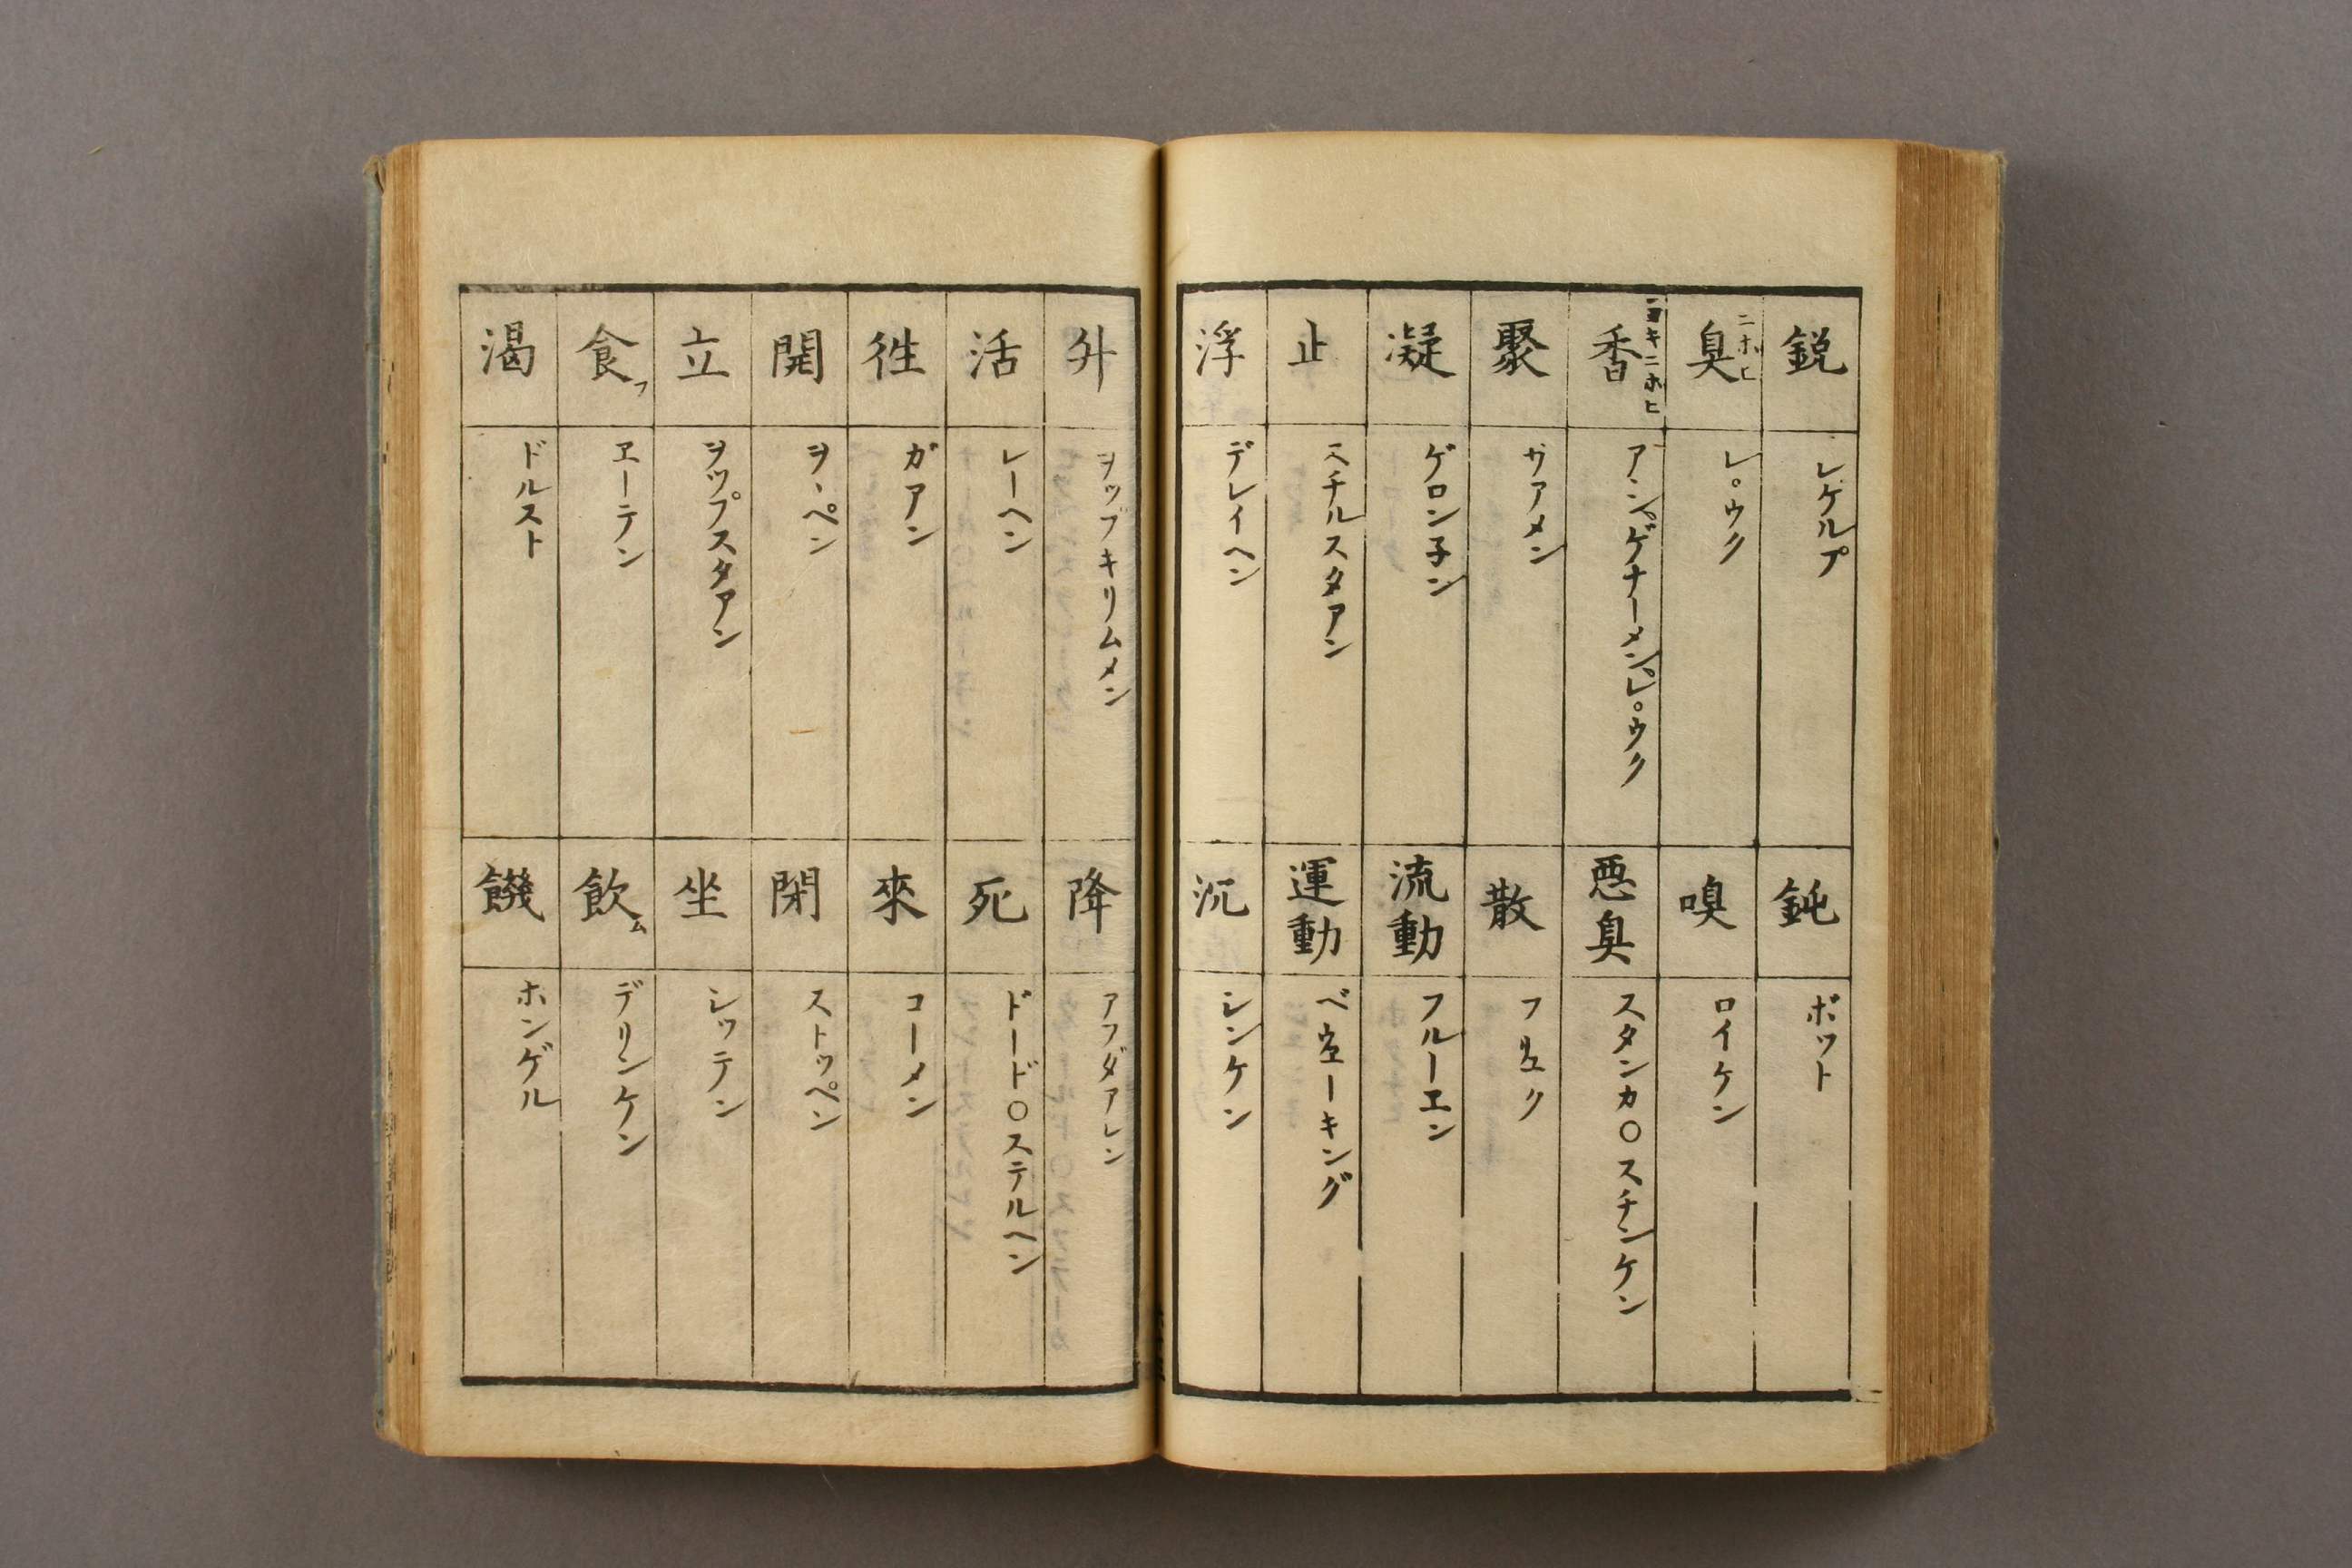 鋭 レケルプ
鈍 ボット
臭 ニホヒ レ゜ウク
嗅 ロイケン
香 ヨキニホヒ アンゲナーメン レ゜ウク
悪臭 スタンカ〇スチンケン
聚 サアメン
散 フリユク
凝 ゲロン子ン
流動 フルーエン
止 スチルスタアン
運動 ベウエーキング
浮 デレイヘン
沉 シンケン
升 ヲップキリムメン
降 アフダアレン
活 レーヘン
死 ドード〇ステルヘン
徃 ガアン
來 コーメン
開 ヲヽペン
閉 ストッペン
立 ヲップスタアン
坐 シッテン
食フ エーテン
飲ム デリンケン
渇 ドルスト
饑 ホンゲル